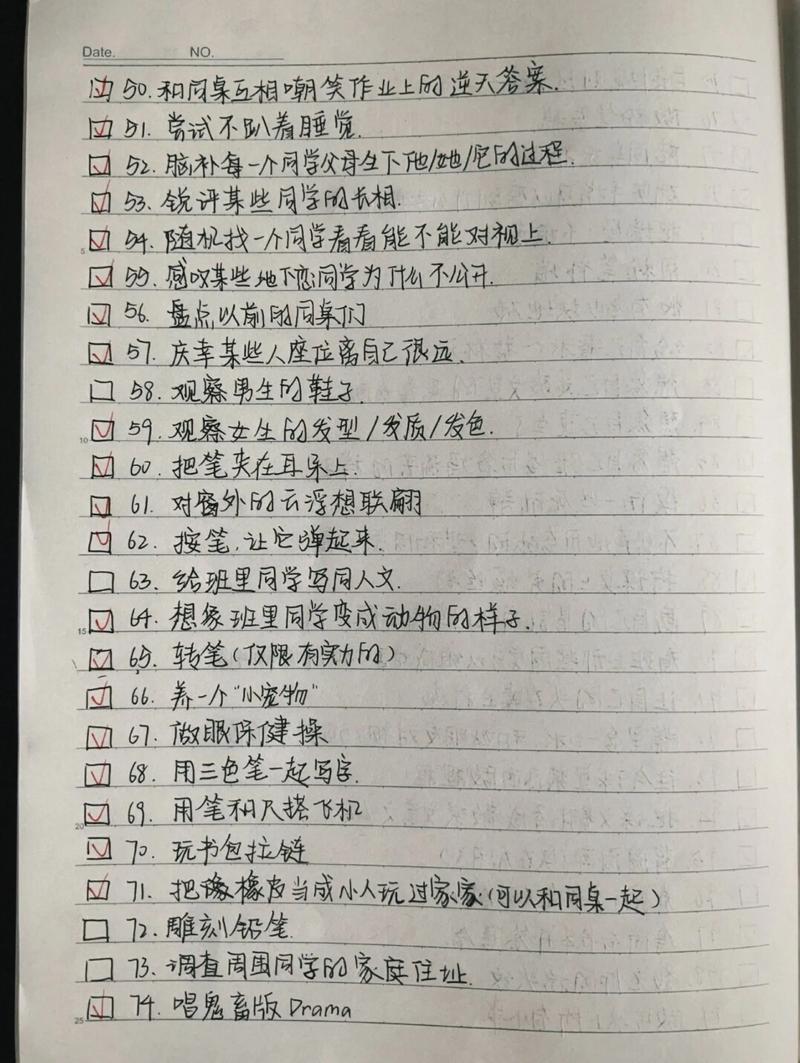 Date. NO.
50. 和同桌互相嘲笑作业上的逆天答案.
51. 尝试不趴着睡觉.
52. 脑补每一个同学父母生下他/她/它的过程.
53. 锐评某些同学的长相.
54. 随机找一个同学看看能不能对视上.
55. 感叹某些地下恋同学为什么不公开.
56. 盘点以前的同桌们
57. 庆幸某些人座位离自己很远.
58. 观察男生的鞋子.
59. 观察女生的发型/发质/发色.
60. 把笔夹在耳朵上.
61. 对窗外的云浮想联翩
62. 按笔,让它弹起来.
63. 给班里同学写同人文.
64. 想象班里同学变成动物的样子.
65. 转笔(仅限有实力的)
66. 养一个"小宠物"
67. 做眼保健操
68. 用三色笔一起写字.
69. 用笔和尺搭飞机
70. 玩书包拉链
71. 把橡皮当成小人玩过家家(可以和同桌一起)
72. 雕刻铅笔.
73. 调查周围同学的家庭住址.
74. 唱鬼畜版Drama
5
10
15
20
25